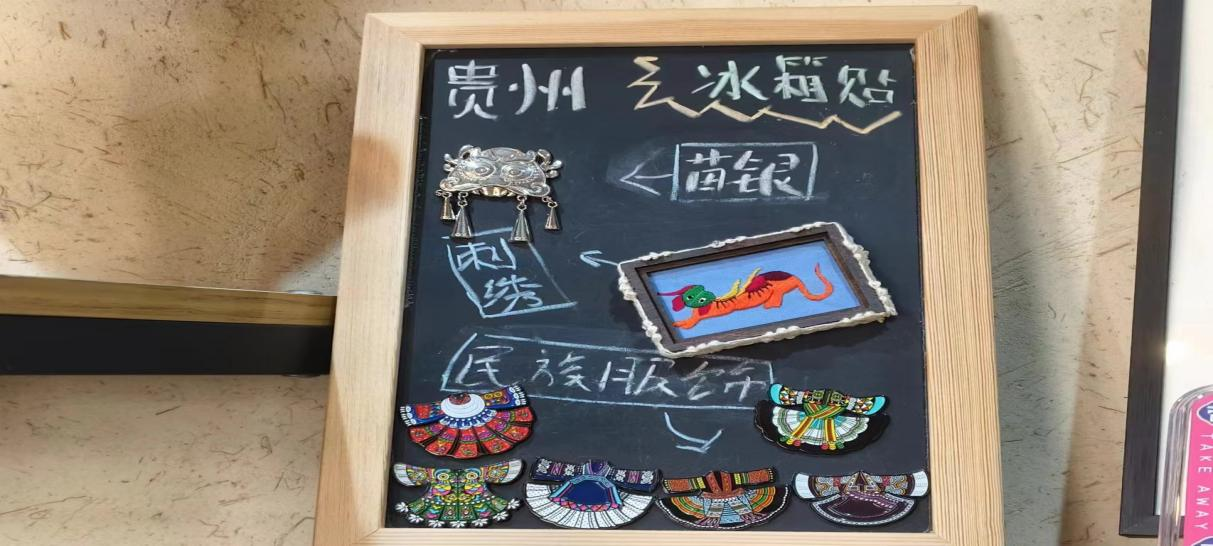 贵州 冰箱贴
苗银
刺
绣
民族服饰
TAKE AWAY